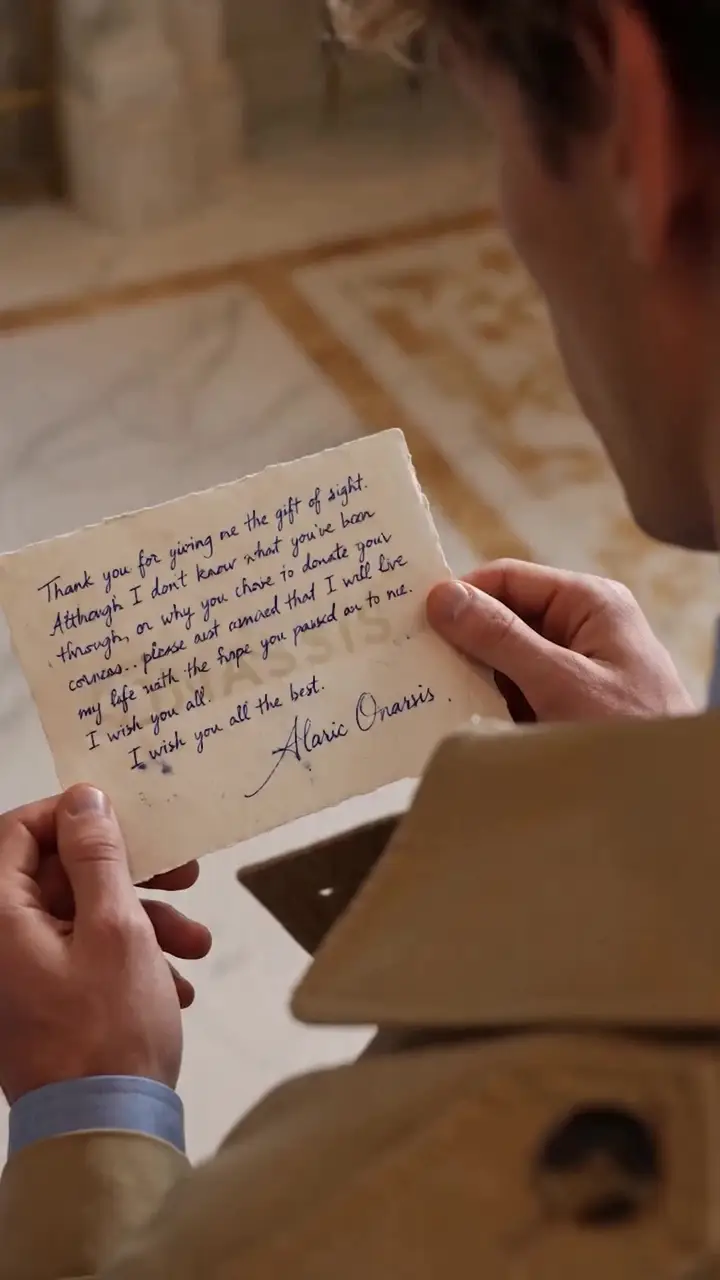 Thank you for giving me the gift of sight.
Although I don't know what you've been
through, or why you chose to donate your
corneas.. please that I will live
my life with the hope you passed on to me.
I wish you all.
I wish you all the best.
Alaric Onassis.